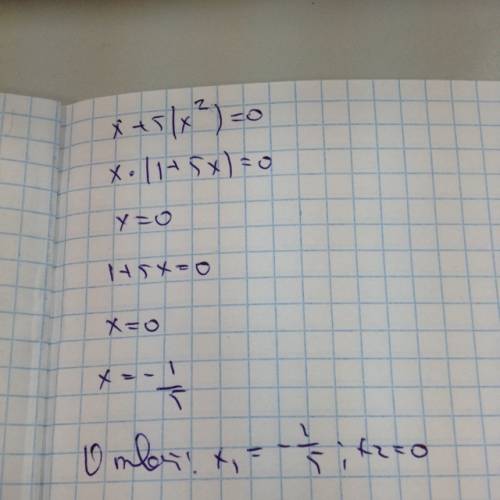 x+5(x²)=0
x·(1+5x)=0
x=0
1+5x=0
x=0
x=-1/5
Ответ: x₁=-1/5; x₂=0